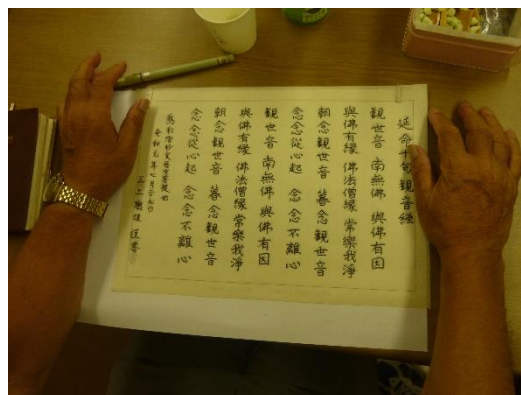 延命十句観音経
観世音 南無佛 與佛有因
與佛有縁 佛法僧縁 常樂我淨
朝念観世音 暮念観世音
念念從心起 念念不離心
観世音 南無佛 與佛有因
與佛有縁 佛法僧縁 常樂我淨
朝念観世音 暮念観世音
念念從心起 念念不離心
令和元年七月二十九日